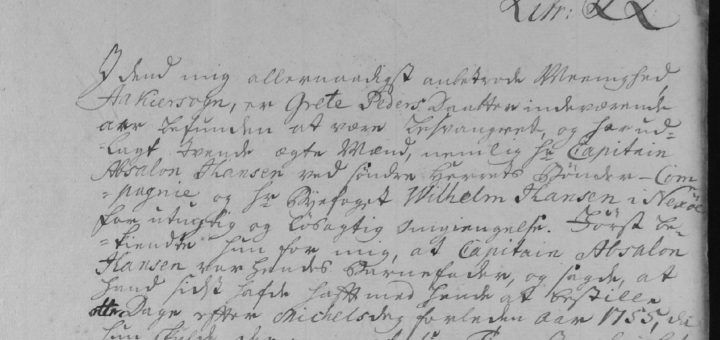 Litr: LL
I dend mig allernaadigst anbetrode Meenighed
Aakiersogn, er Grete Peders Daatter indeværende
aar befunden at være besvangret, og har ud-
-lagt tvende ægte Mænd, nemlig Hr Capitain
Absalon Hansen ved søndre Herrets Bønder-Com
-pagnie og Hr Byefoget Wilhelm Hansen i Nexøe
for utugtig og løsagtig omgiengelse. Først be-
-kiendte hun for mig, at Capitain Absalon
Hansen var hendes Barnefader, og sagde, at
hand sidst hafde haft med hende at bestille
otte Dage efter Michelsdag forleden aar 1755, da
hun skulde